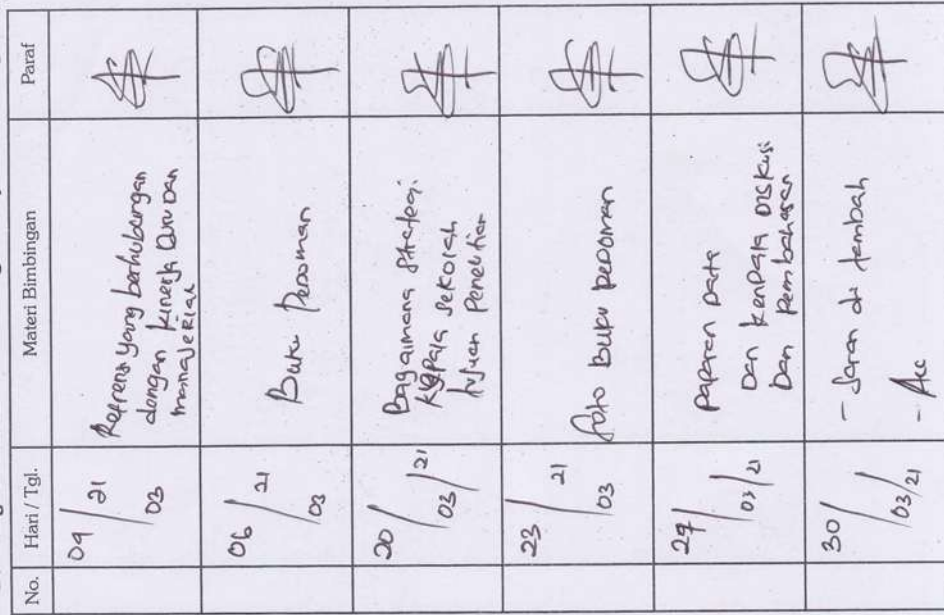 No.
Hari / Tgl.
Materi Bimbingan
Paraf
/ 21
03
Refrensi yang berhubungan
dengan kinerja Guru Dan
manajerial
06 / 21
03
Buku Pedoman
20 / 03 / 21
Bagaimana Strategi
Kepala sekolah
Tujuan Penelitian
23 / 21
03
foto buku pedoman
29 / 03 / 21
paparan Data
Dan Diskusi
Dan Pembahasan
30 / 03 / 21
- Saran di tambah
- Acc